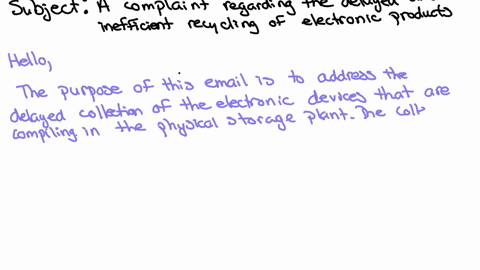 Subject: A complaint regarding the delayed
inefficient recycling of electronic products
Hello,
The purpose of this email is to address the
delayed collection of the electronic devices that are
compiling in the physical storage plant. The coll